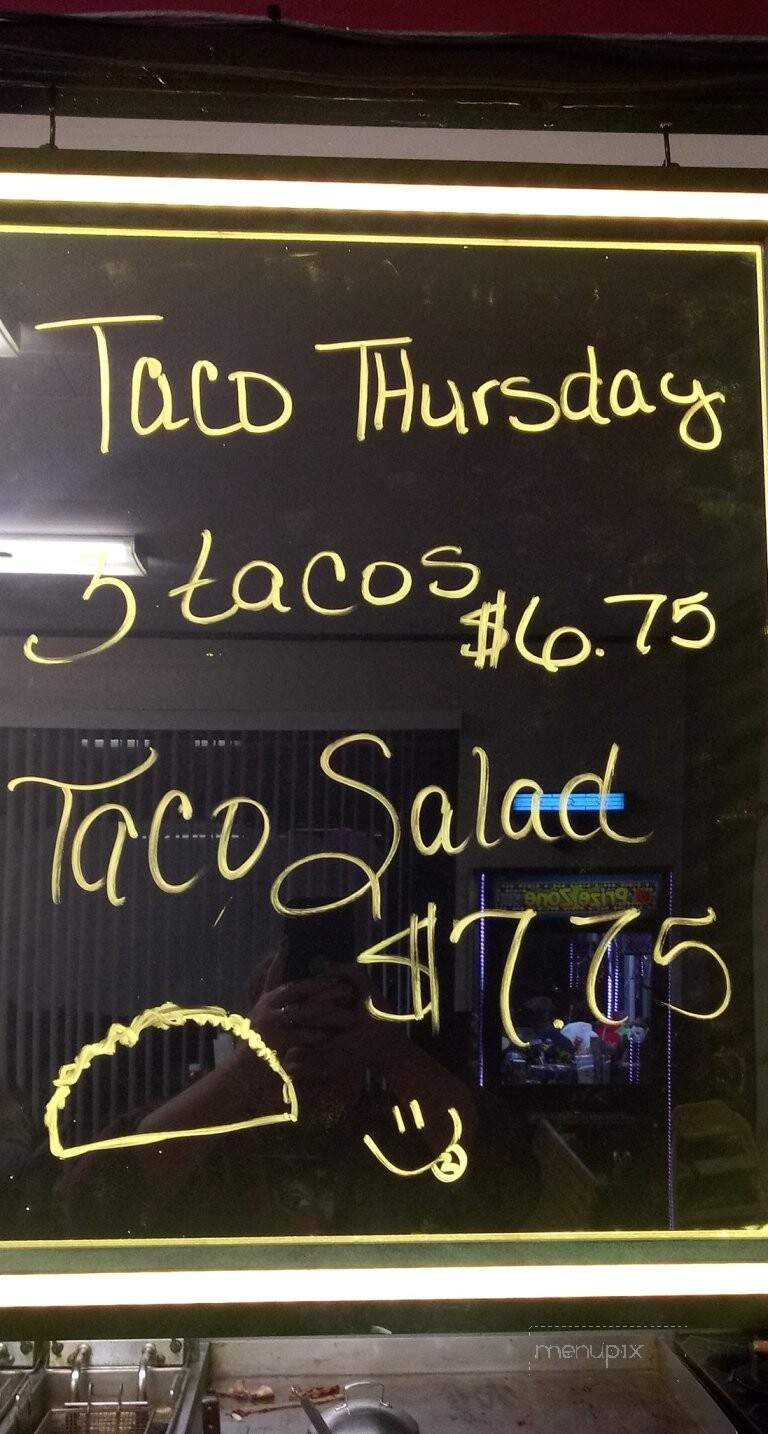 Taco THursday
3 tacos
$6.75
Taco Salad
$7.75
Prize Zone
menupix